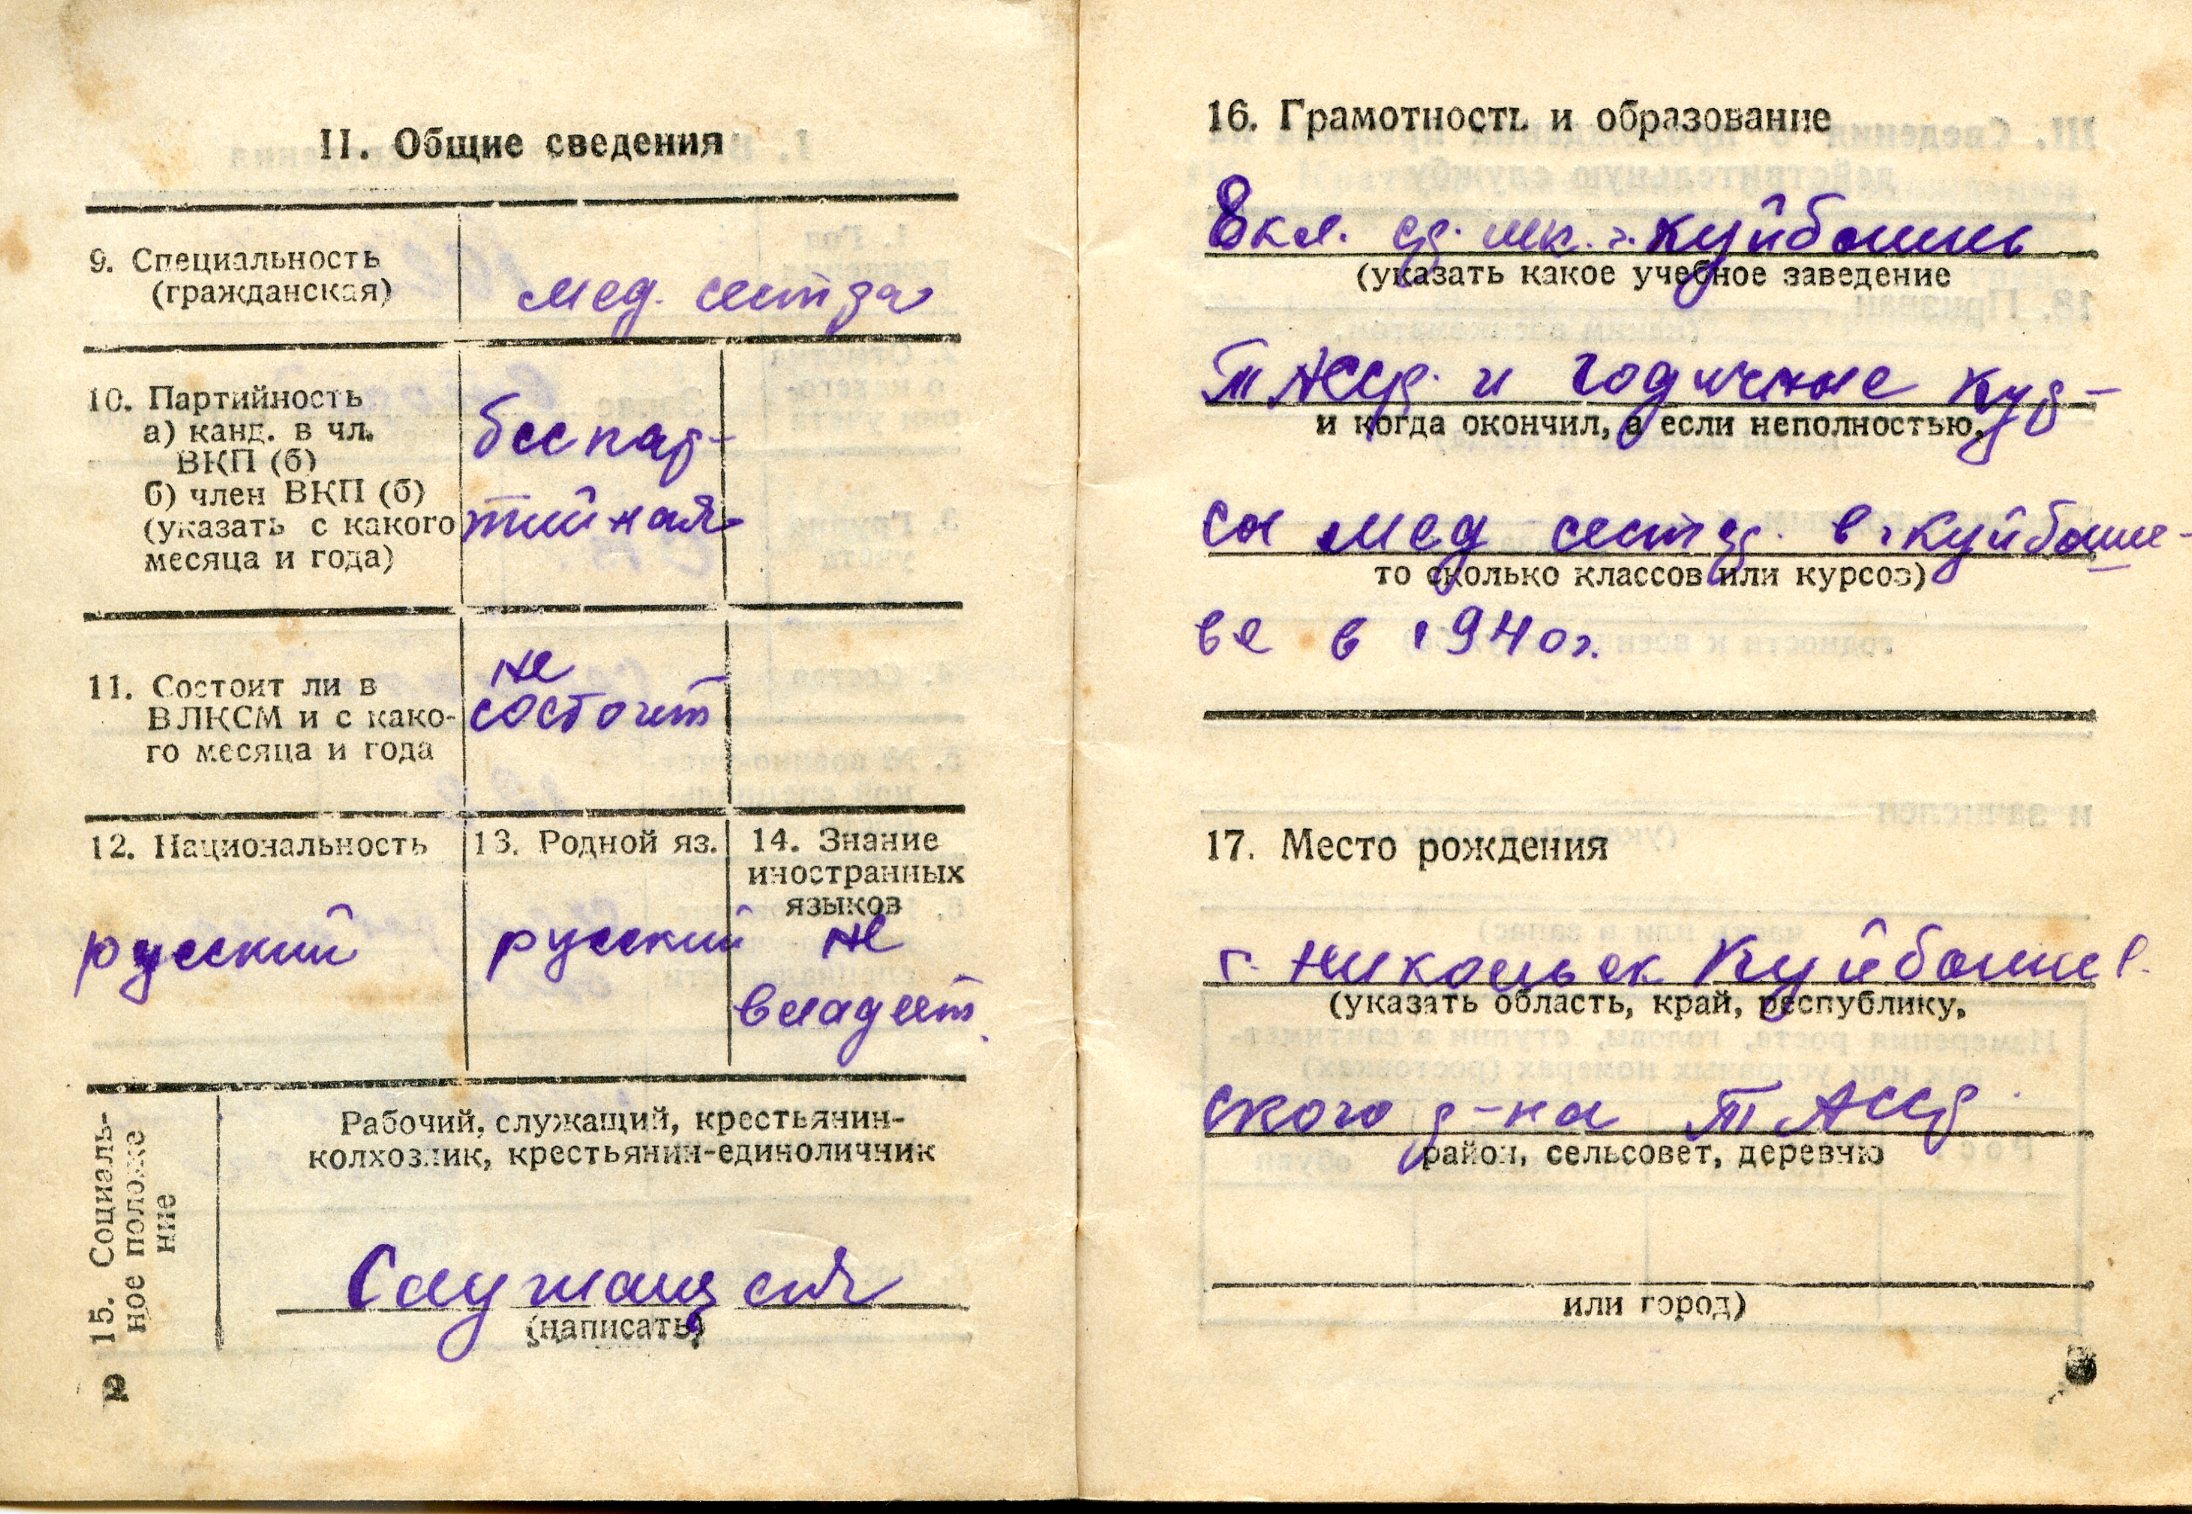 II. Общие сведения
9. Специальность
(гражданская)
мед. сестра
10. Партийность
а) канд. в чл.
ВКП (б)
б) член ВКП (б)
(указать с какого
месяца и года)
беспар-
тийная
11. Состоит ли в
ВЛКСМ и с како-
го месяца и года
не
состоит
12. Национальность
русский
13. Родной яз.
русский
14. Знание
иностранных
языков
не
владеет.
15. Социаль-
ное положе
ние
Рабочий, служащий, крестьянин-
колхозник, крестьянин-единоличник
Служащая
(написать)
2
16. Грамотность и образование
8 кл. ср. шк. г. Куйбышев
(указать какое учебное заведение
ТАССР. и годичные кур-
и когда окончил, а если неполностью,
сы мед сестр. в г. Куйбыше-
то сколько классов или курсов)
ве в 1940 г.
17. Место рождения
г. Никольск Куйбышев.
(указать область, край, республику,
ского р-на ТАССР
район, сельсовет, деревню
или город)